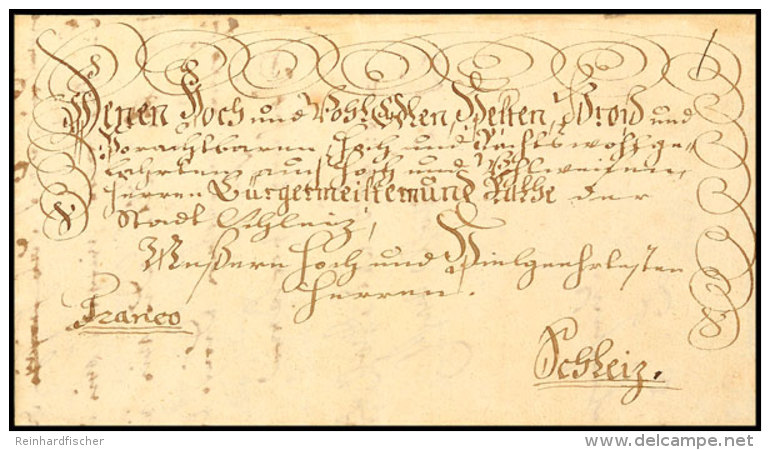 Denen Hoch und Wohl Edlen Vesten, und
Vorachtbaren, Hoch und Rechtswohlge-
lahrten, auch Hoch und Wohlweisen,
Herren Bürgermeistern und Rathe der
Stadt Schleiz,
Meinen Hoch und Vielgeehrtesten
Herren.
Franco
Schleiz.
Reinhardfischer
www.delcampe.net